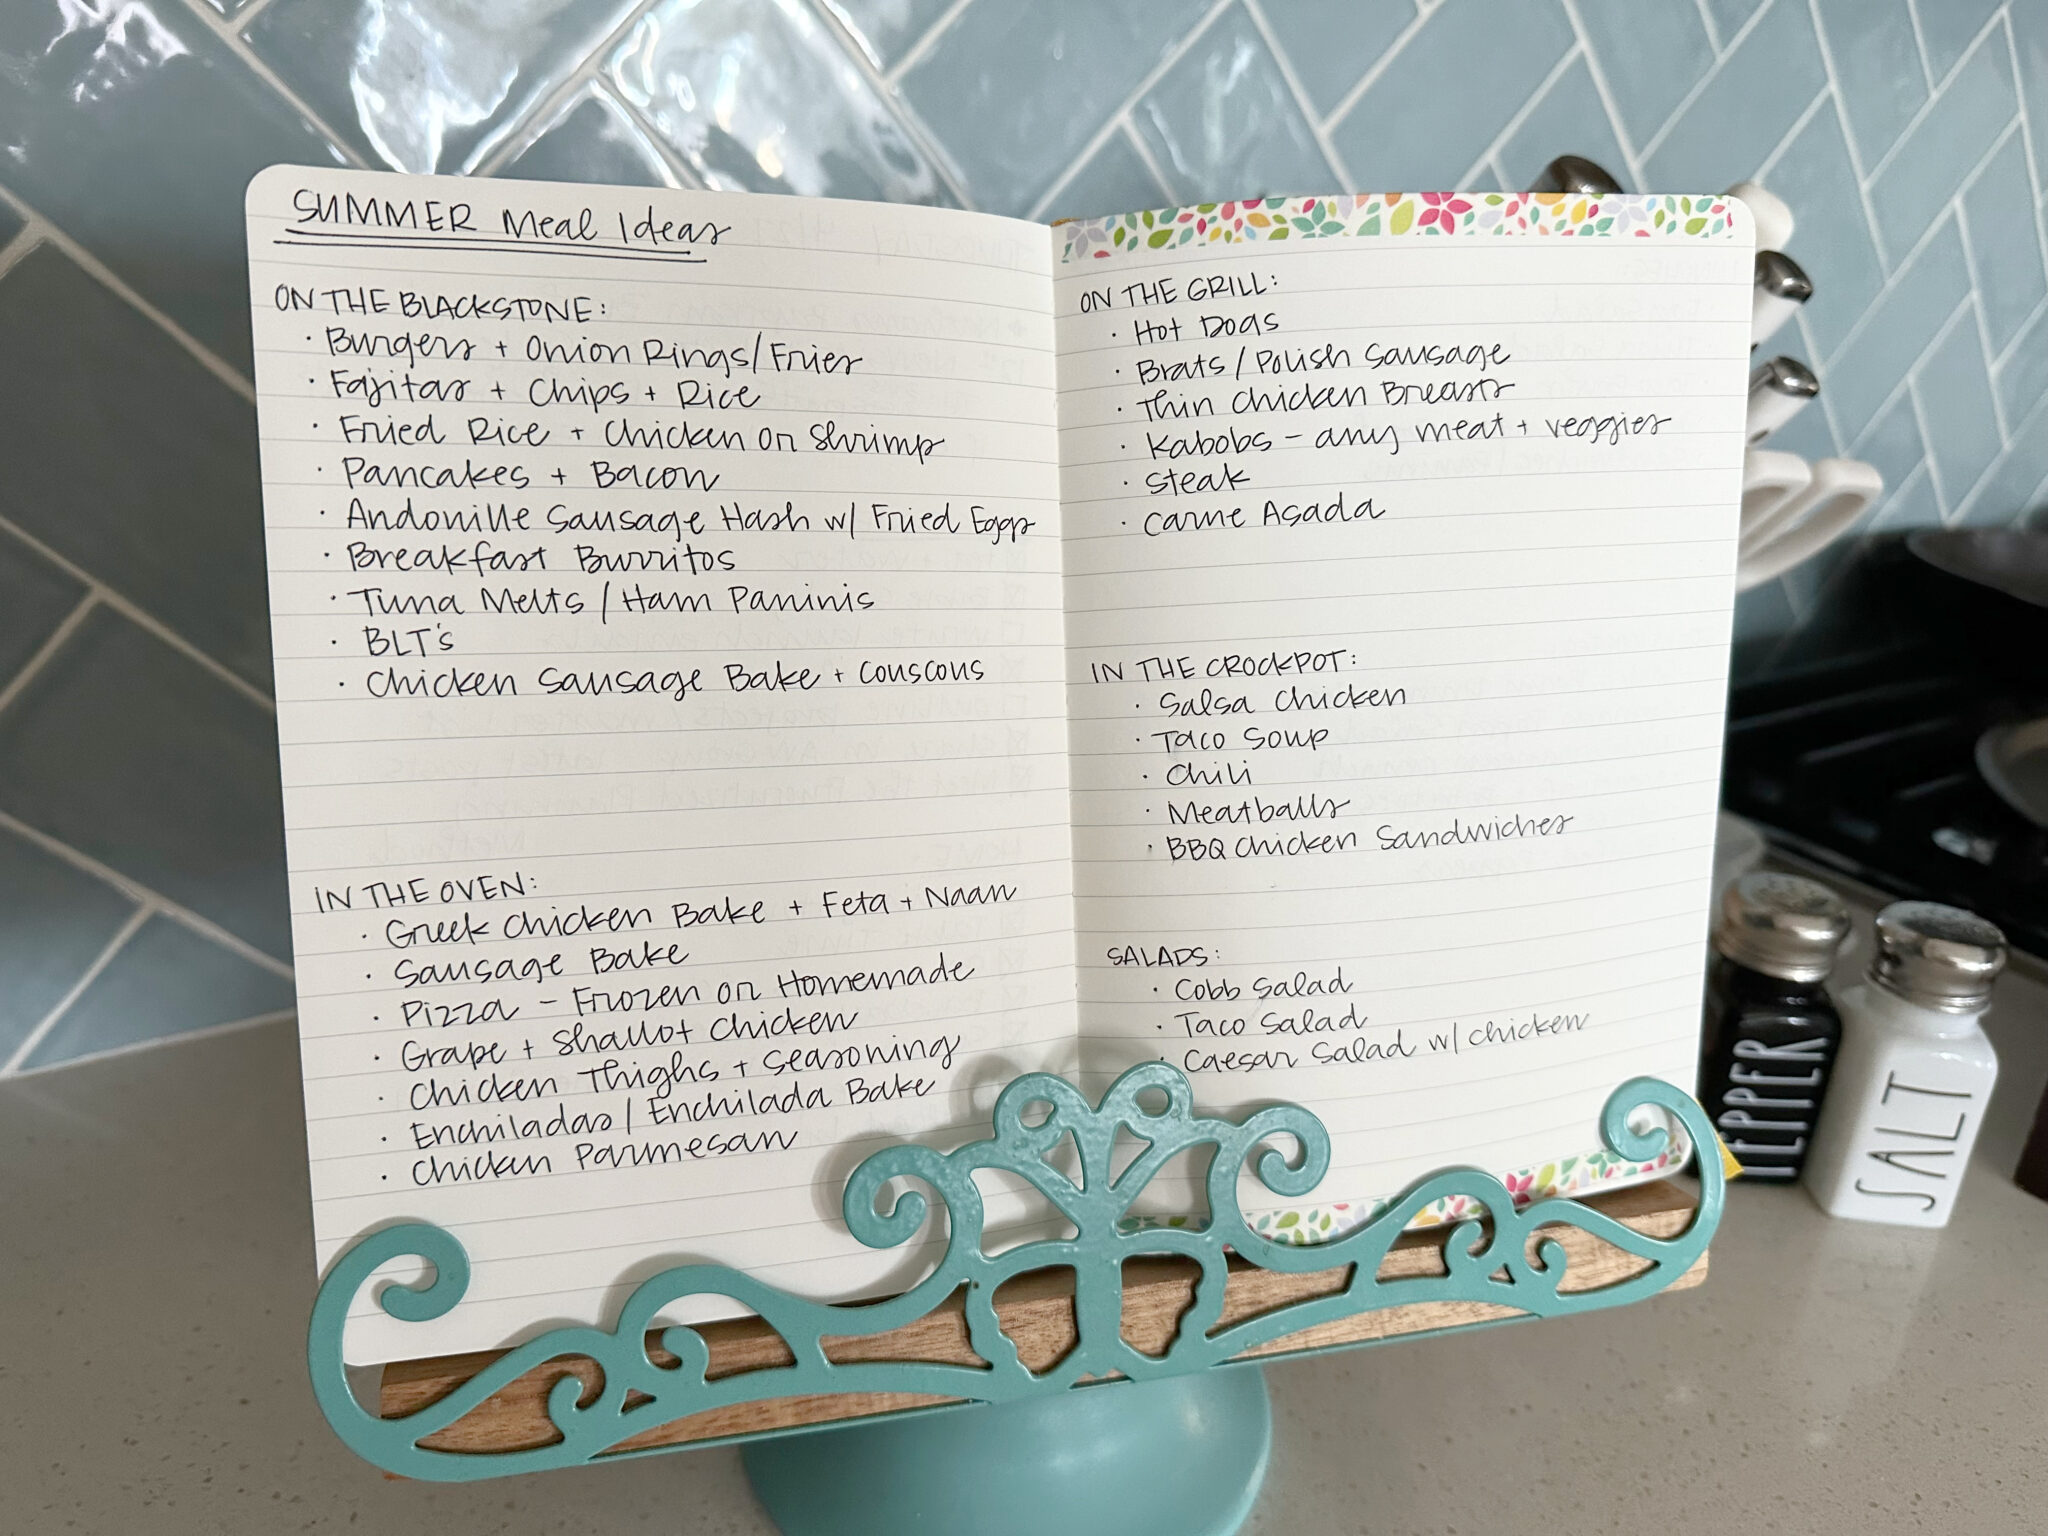 SUMMER Meal Ideas
ON THE BLACKSTONE:
· Burgers + Onion Rings/Fries
· Fajitas + Chips + Rice
· Fried Rice + Chicken or Shrimp
· Pancakes + Bacon
· Andouille Sausage Hash w/ Fried Eggs
· Breakfast Burritos
· Tuna Melts / Ham Paninis
· BLT's
· Chicken Sausage Bake + Couscous
IN THE OVEN:
· Greek Chicken Bake + Feta + Naan
· Sausage Bake
· Pizza - Frozen or Homemade
· Grape + Shallot Chicken
· Chicken Thighs + Seasoning
· Enchiladas / Enchilada Bake
· Chicken Parmesan
ON THE GRILL:
· Hot Dogs
· Brats / Polish Sausage
· Thin Chicken Breasts
· Kabobs - any meat + veggies
· Steak
· Carne Asada
IN THE CROCKPOT:
· Salsa Chicken
· Taco Soup
· Chili
· Meatballs
· BBQ Chicken Sandwiches
SALADS:
· Cobb Salad
· Taco Salad
· Caesar Salad w/ chicken
PEPPER
SALT